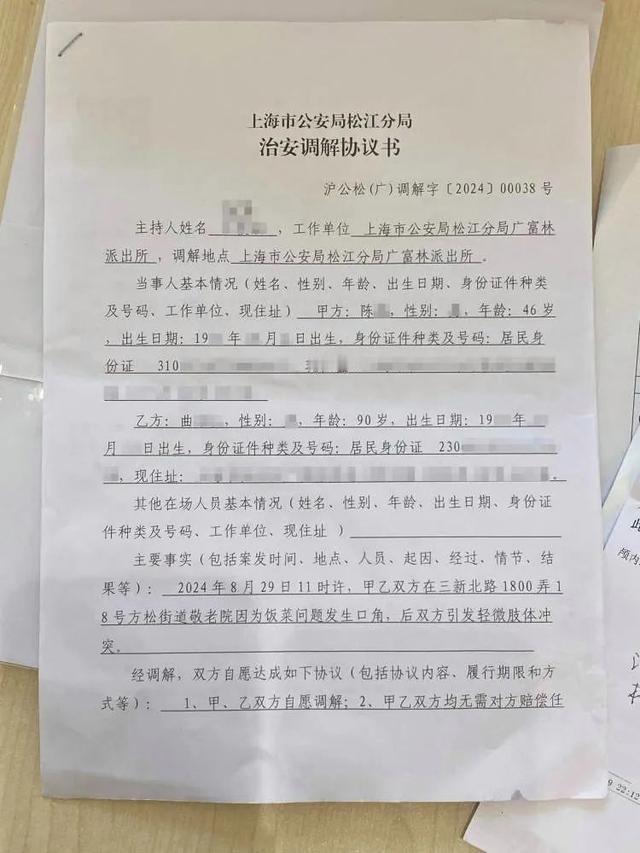 上海市公安局松江分局
治安调解协议书
沪公松(广)调解字〔2024〕00038 号
主持人姓名 ,工作单位 上海市公安局松江分局广富林
派出所 ,调解地点 上海市公安局松江分局广富林派出所 。
当事人基本情况(姓名、性别、年龄、出生日期、身份证件种类
及号码、工作单位、现住址) 甲方:陈 ,性别: ,年龄:46 岁
,出生日期:19 年 月 日出生,身份证件种类及号码:居民身
份证 310
乙方:曲 ,性别: ,年龄:90 岁,出生日期:19 年
月 日出生,身份证件种类及号码:居民身份证 230
,现住址: 。
其他在场人员基本情况(姓名、性别、年龄、出生日期、身份证
件种类及号码、工作单位、现住址 )
主要事实(包括案发时间、地点、人员、起因、经过、情节、结
果等): 2024 年 8 月 29 日 11 时许,甲乙双方在三新北路 1800 弄 1
8 号方松街道敬老院因为饭菜问题发生口角,后双方引发轻微肢体冲
突。
经调解,双方自愿达成如下协议(包括协议内容、履行期限和方
式等): 1、甲、乙双方自愿调解;2、甲乙双方均无需对方赔偿任
此
颅内
9 22:12